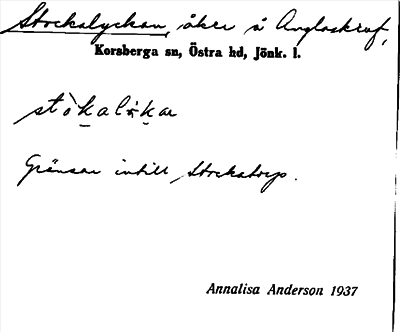 Stockalyckan, åker å Anglaskruf,
Korsberga sn, Östra hd, Jönk. l.
stòkalykar
Gränsar intill Stockatorp.
Annalisa Anderson 1937